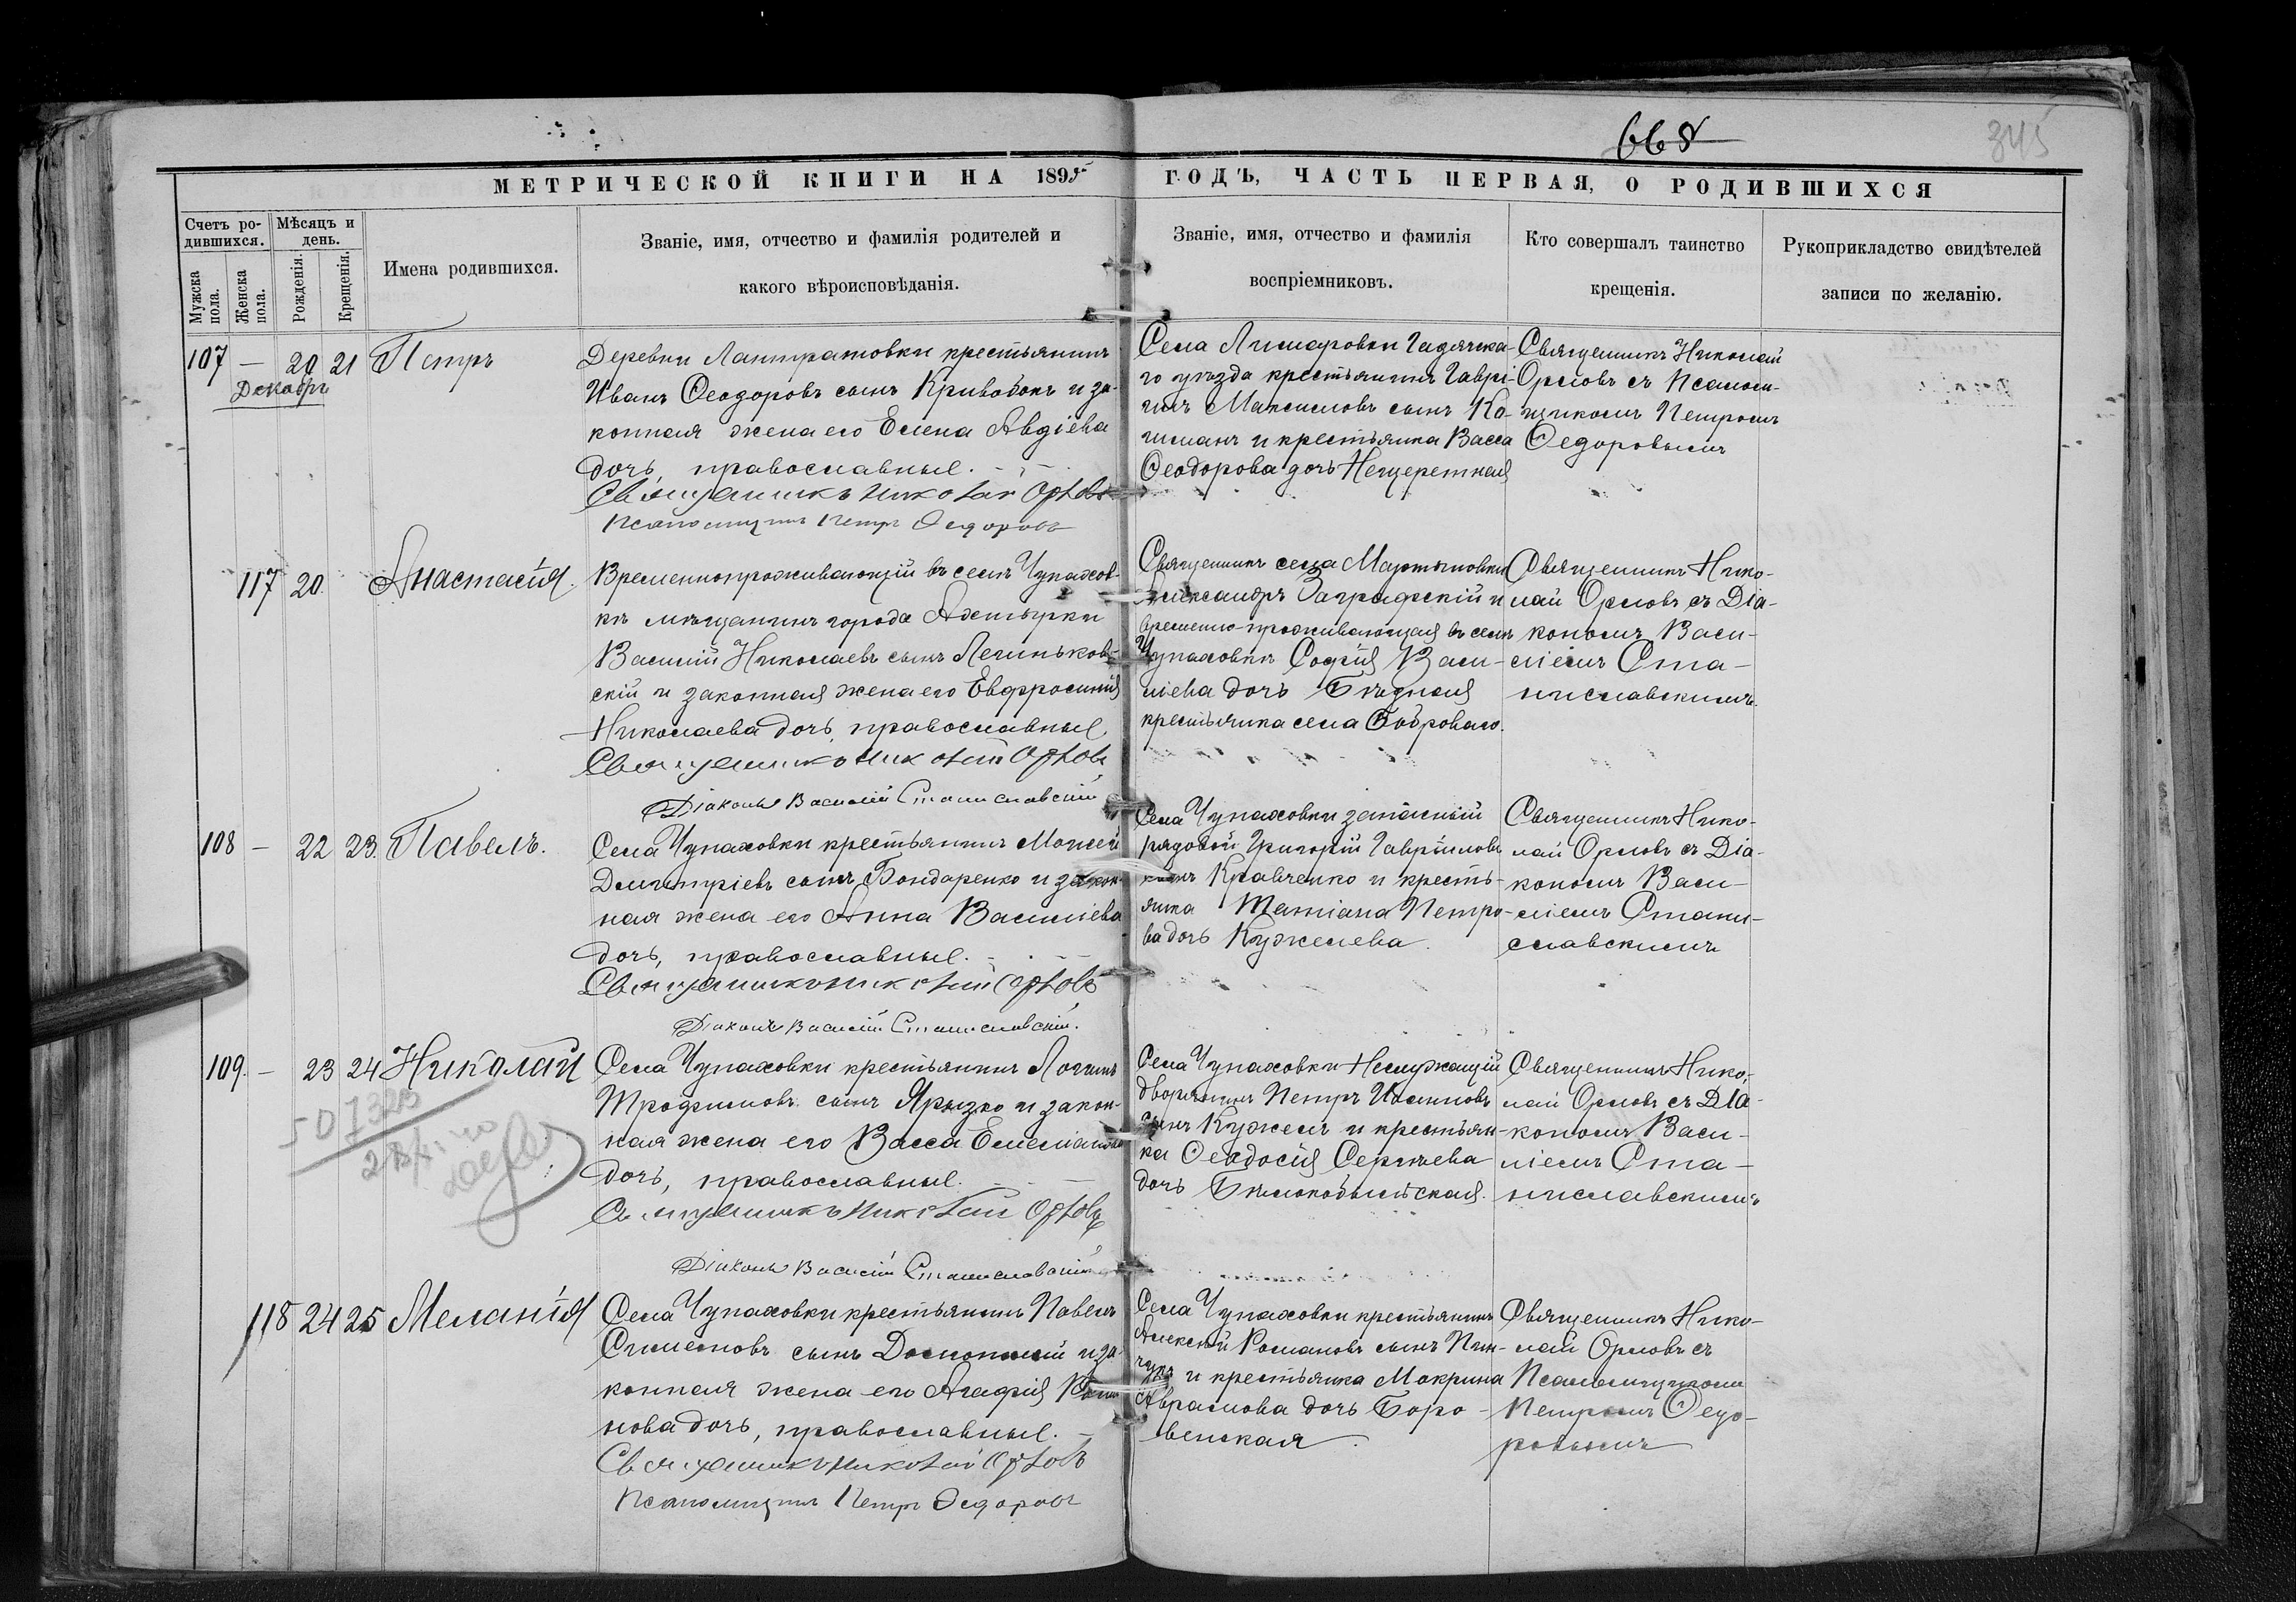 668
345
МЕТРИЧЕСКОЙ КНИГИ НА 1895 ГОДЪ, ЧАСТЬ ПЕРВАЯ, О РОДИВШИХСЯ
Счетъ ро-
дившихся.
Мужска
пола.
Женска
пола.
Мѣсяцъ и
день.
Рожденія.
Крещенія.
Имена родившихся.
Званіе, имя, отчество и фамилія родителей и
какого вѣроисповѣданія.
Званіе, имя, отчество и фамилія
воспріемниковъ.
Кто совершалъ таинство
крещенія.
Рукоприкладство свидѣтелей
записи по желанію.
107 — 20 21 Петръ
Декабрь
Деревни Лантратовки крестьянинъ
Иванъ Ѳеодоровъ сынъ Кривобокъ и за-
конная жена его Елена Авдіева
дочь, православные.
Священникъ Николай Орловъ
Псаломщикъ Петръ Ѳедоровъ
Села Лимаровки Гадячска-
го уѣзда крестьянинъ Гаврі-
илъ Максимовъ сынъ Ко-
и крестьянка Васса
Ѳеодорова дочь Нещеретная
Священникъ Николай
Орловъ съ Псалом-
щикомъ Петромъ
Ѳедоровымъ
117 20 Анастасія.
Временнопроживающій въ селѣ Чупахов-
кѣ мѣщанинъ города Ахтырки
Василій Николаевъ сынъ Легиньков-
скій и законная жена его Евфросинія
Николаева дочь, православные
Священникъ Николай Орловъ
Діаконъ Василій Станиславскій
Священникъ села Мартыновки
Александръ Заграфскій и
временно-проживающая въ селѣ
Чупаховкѣ Софія Васи-
ліева дочь Бѣдная
крестьянка села Боброваго.
Священникъ Нико-
лай Орловъ съ Діа-
кономъ Васи-
ліемъ Ста-
ниславскимъ.
108 — 22 23. Павелъ.
Села Чупаховки крестьянинъ Моисей
Димитріевъ сынъ Бондаренко и закон-
ная жена его Анна Василіева
дочь, православные.
Священникъ Николай Орловъ
Діаконъ Василій Станиславскій.
Села Чупаховки запасный
рядовой Григорій Гавріиловъ
сынъ Кравченко и кресть-
янка Татіана Петро-
ва дочь Кужелева.
Священникъ Нико-
лай Орловъ съ Діа-
кономъ Васи-
ліемъ Стани-
славскимъ
109. — 23 24 Николай
507323
Села Чупаховки крестьянинъ Логинъ
Трофимовъ сынъ Ярызко и закон-
ная жена его Васса Емеліанова
дочь, православные.
Священникъ Николай Орловъ
Діаконъ Василій Станиславскій
Села Чупаховки Неслужащій
дворянинъ Петръ Иоанновъ
сынъ Кужель и крестьян-
ка Ѳеодосія Сергѣева
дочь Бѣлокобыльская.
Священникъ Нико-
лай Орловъ съ Діа-
кономъ Васи-
ліемъ Ста-
ниславскимъ
118 24 25 Меланія
Села Чупаховки крестьянинъ Павелъ
Симеоновъ сынъ и за-
конная жена его Агафія Рома-
нова дочь, православные.
Священникъ Николай Орловъ
Псаломщикъ Петръ Ѳедоровъ
Села Чупаховки крестьянинъ
Алексѣй Романовъ сынъ Пин-
чукъ и крестьянка Макрина
Аврамова дочь Боро-
венская.
Священникъ Нико-
лай Орловъ съ
Псаломщикомъ
Петромъ Ѳедо-
ровымъ